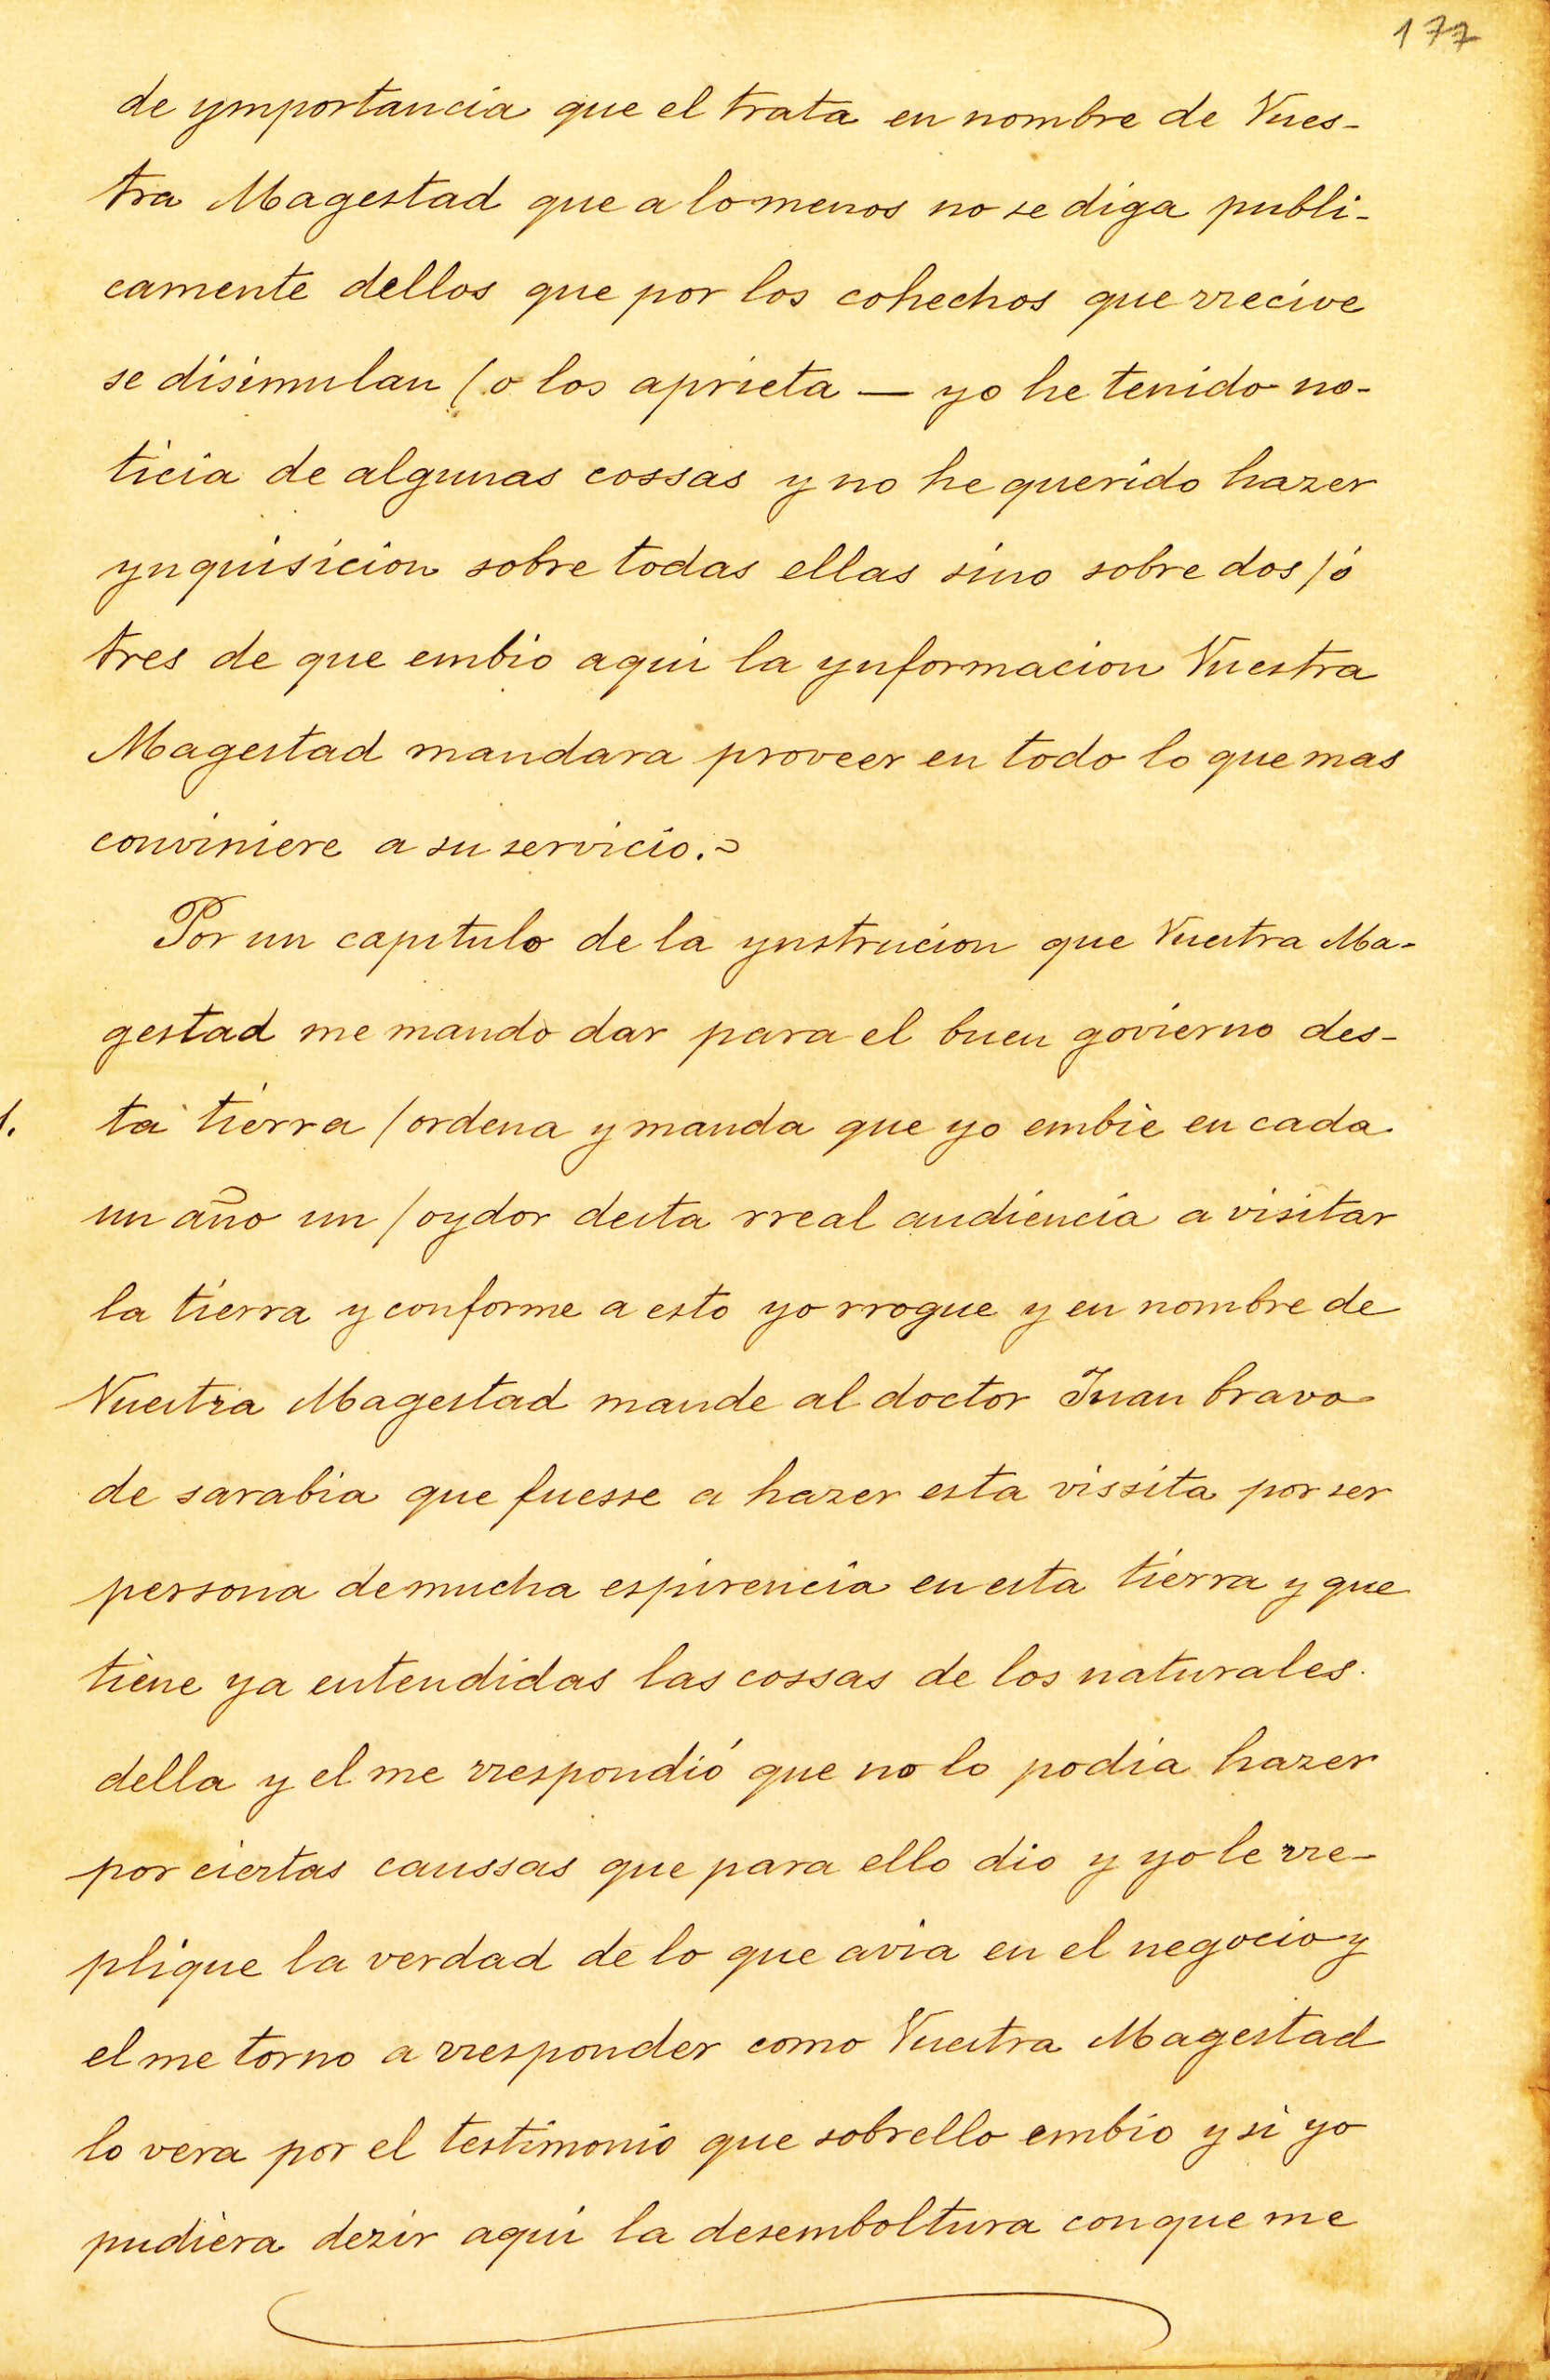 177
de ymportancia que el trata en nombre de Vues-
tra Magestad que a lo menos no se diga publi-
camente dellos que por los cohechos que rrecive
se disimulan (o los aprieta — yo he tenido no-
ticia de algunas cossas y no he querido hazer
ynquisicion sobre todas ellas sino sobre dos /ó
tres de que embio aqui la ynformacion Vuestra
Magestad mandara proveer en todo lo que mas
conviniere a su servicio.=
Por un capitulo de la ynstrucion que Vuestra Ma-
gestad me mando dar para el buen govierno des-
ta tierra /ordena y manda que yo embie en cada
un año un /oydor desta rreal audiencia a visitar
la tierra y conforme a esto yo rrogue y en nombre de
Vuestra Magestad mande al doctor Juan bravo
de sarabia que fuesse a hazer esta vissita por ser
persona de mucha espirencia en esta tierra y que
tiene ya entendidas las cossas de los naturales.
della y el me rrespondió que no lo podia hazer
por ciertas caussas que para ello dio y yo le rre-
plique la verdad de lo que avia en el negocio y
el me torno a rresponder como Vuestra Magestad
lo vera por el testimonio que sobrello embio y si yo
pudiera dezir aqui la desemboltura con que me